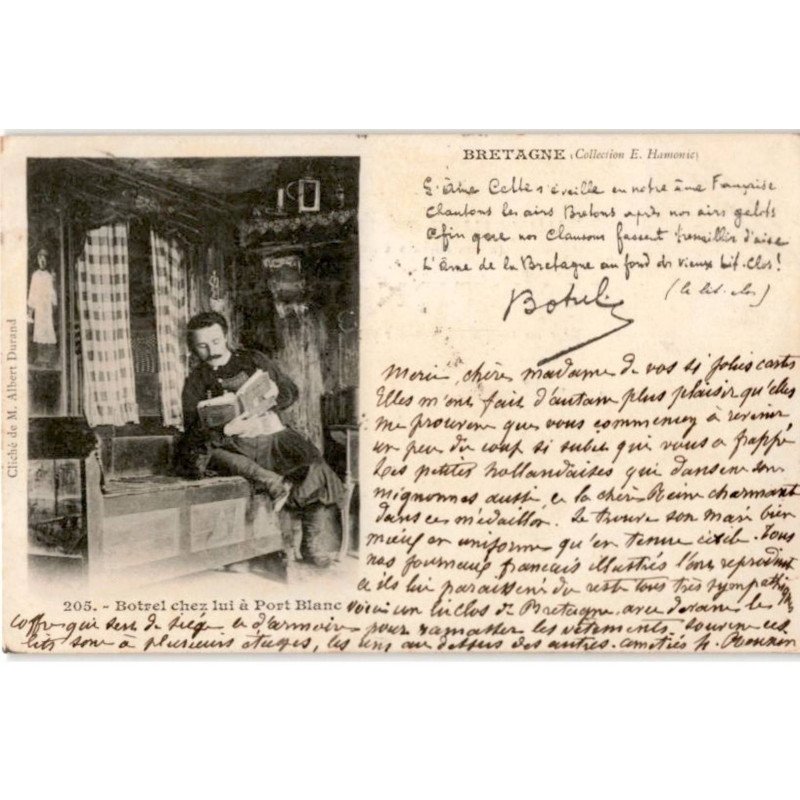 BRETAGNE (Collection E. Hamonic)
L'âme Celte s'éveille en notre âme Française
Chantons les airs Bretons après nos airs gaulois
Afin que nos Chansons fassent tressaillir d'aise
L'âme de la Bretagne au fond des vieux Lit-Clos!
Botrel
(le lit-clos)
Cliché de M. Albert Durand
Merci, chère madame de vos si jolies cartes
Elles m'ont fait d'autant plus plaisir qu'elles
me prouvent que vous commencez à revenir
un peu du coup si subit qui vous a frappé
Les petites hollandaises qui dansent son
mignonnes aussi et la chère Reine charmant
dans ces médaillon. Je trouve son mari bien
mieux en uniforme qu'en tenue civile. Tous
nos journaux français illustrés l'ont reproduit
et ils lui paraissent du reste tous très sympathiques
205. - Botrel chez lui à Port Blanc
voici un lit clos de Bretagne avec devant le
coffre qui sert de siège et d'armoire pour ramasser les vêtements, souvent ces
lits sont à plusieurs étages, les uns au dessus des autres. amitiés